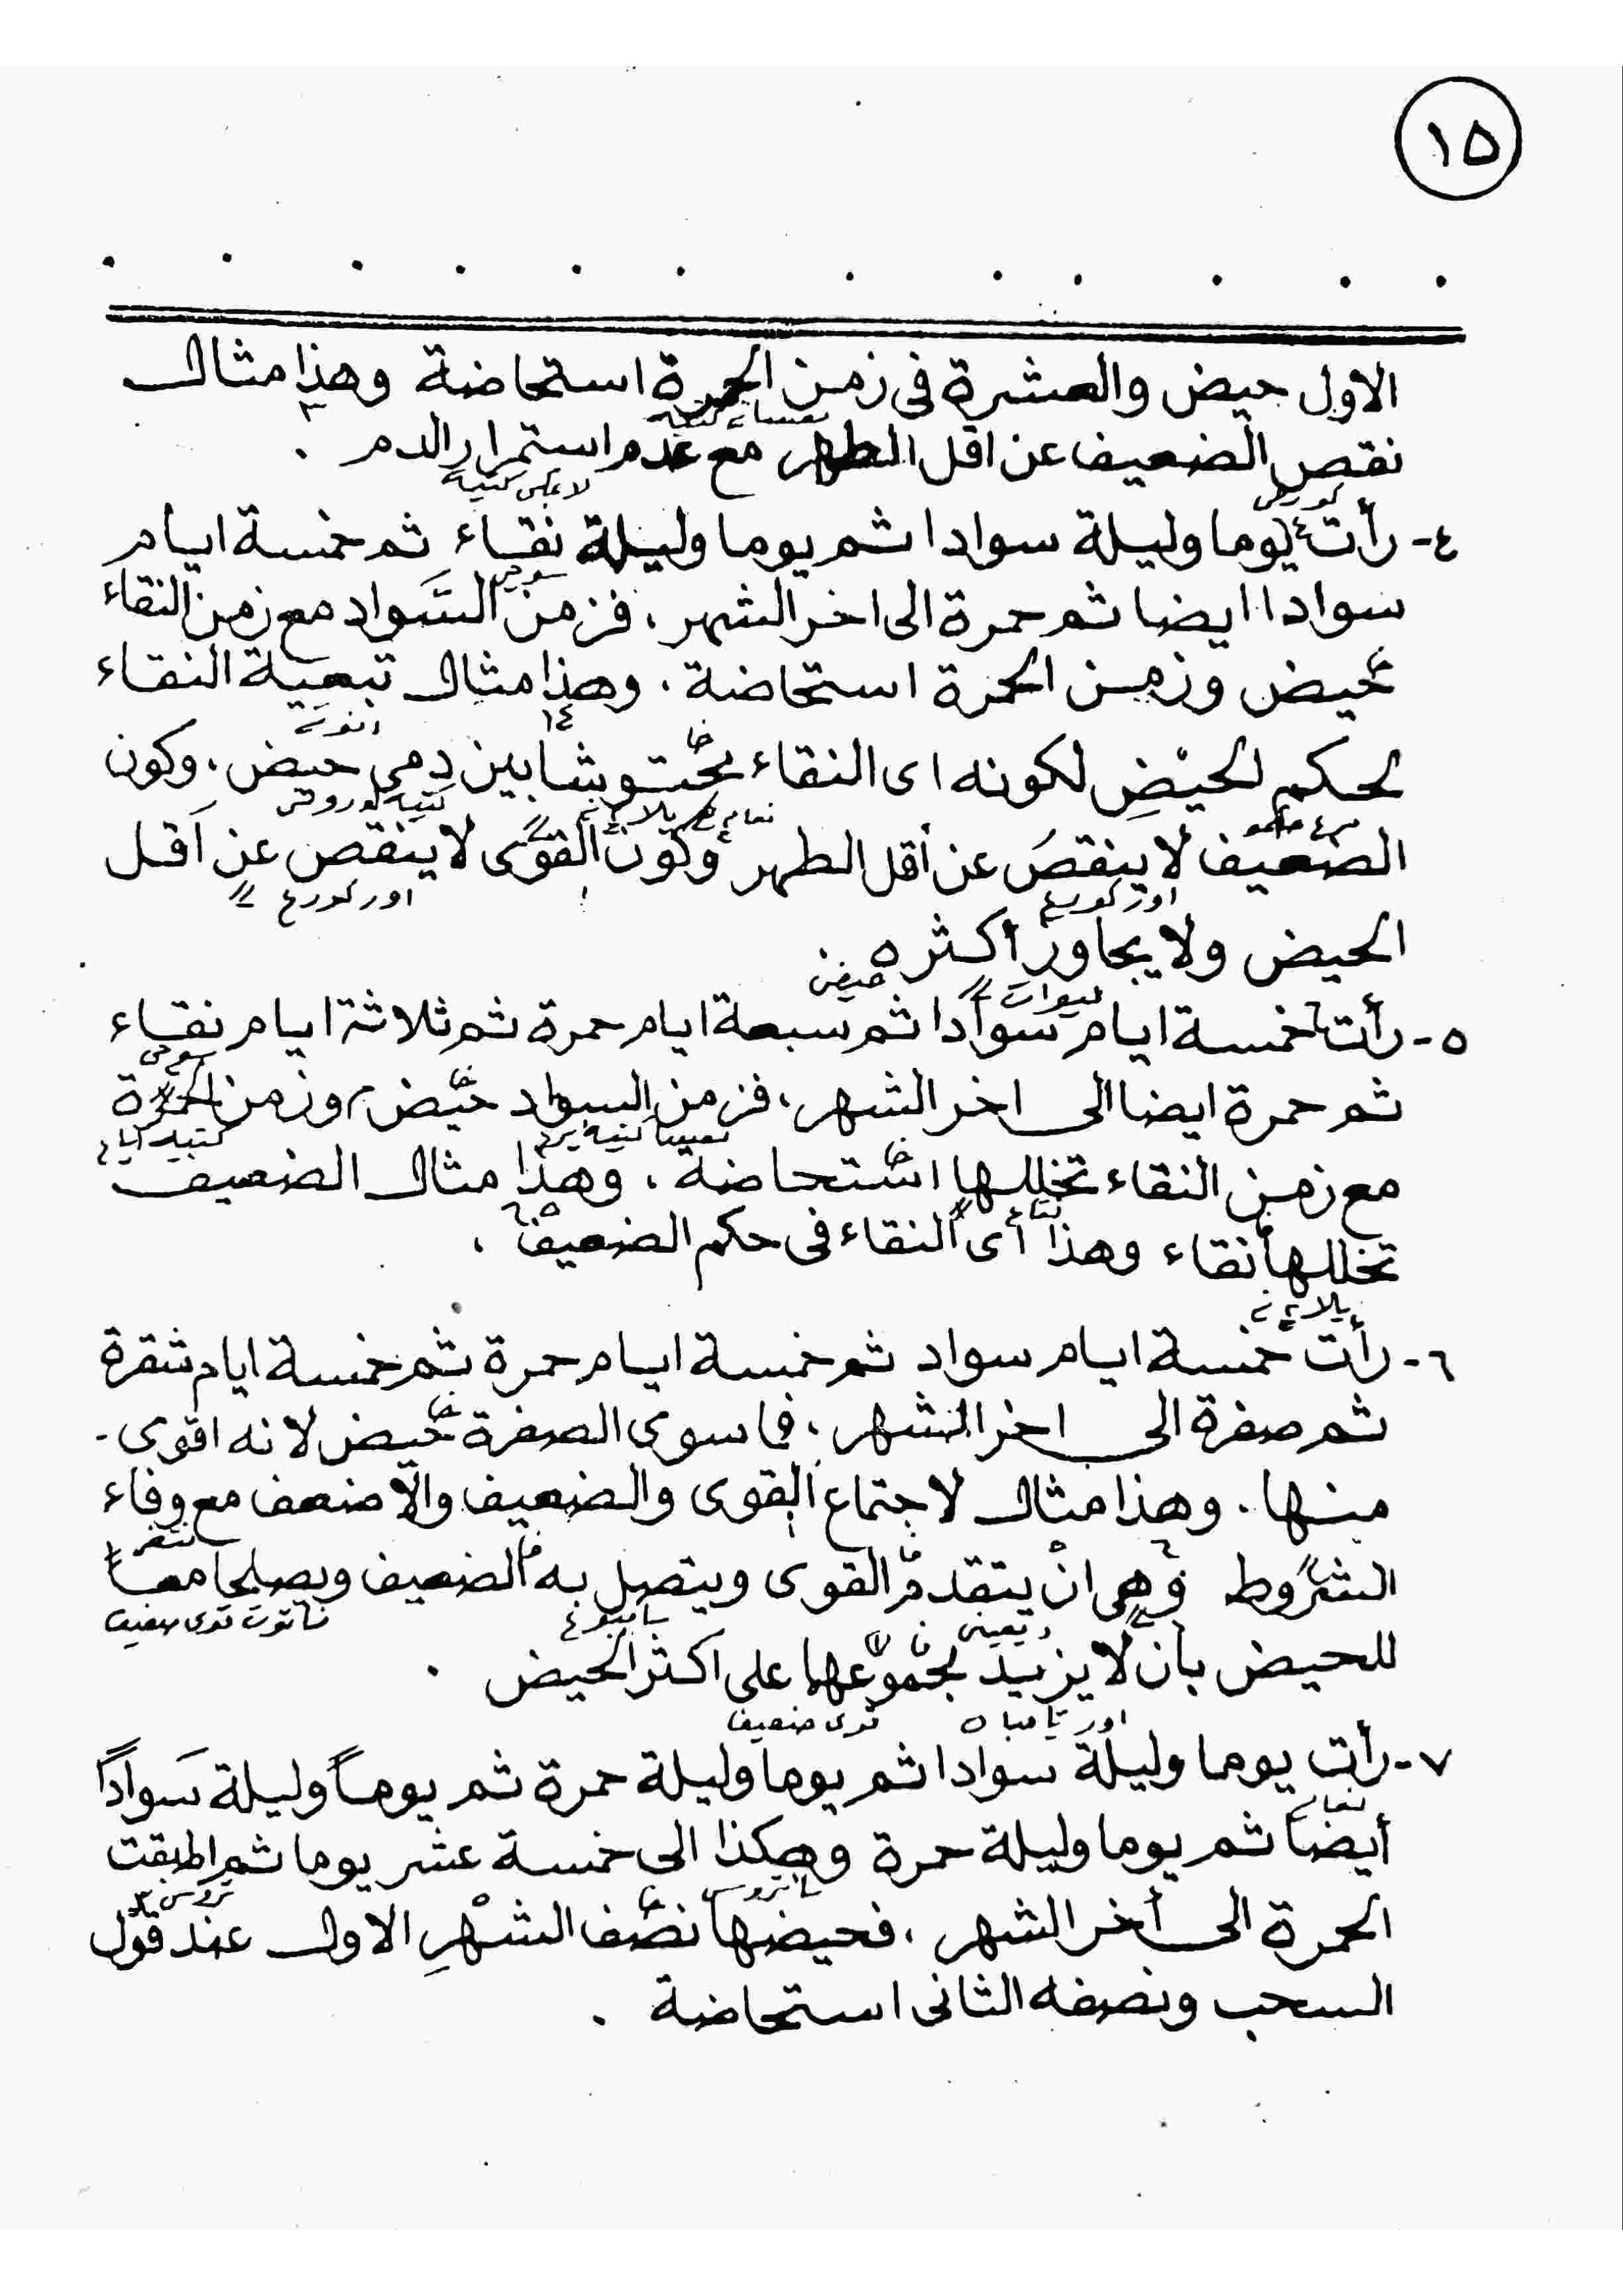 ١٥
الاول حيض والعشرة فى زمن الحمرة استحاضة وهذا مثال
نقص الضعيف عن اقل الطهر مع عدم استمرار الدم .
٤- رأت يوما وليلة سوادا ثم يوما وليلة نقاء ثم خمسة ايام
سوادا ايضا ثم حمرة الى اخر الشهر ، فزمن السَّواد مع زمن النقاء
حيض وزمن الحمرة استحاضة . وهذا مثال تبعية النقاء
لحكم الحيْضِ لكونه اى النقاء محتوشا بين دمي حيض ، وكون
الضعيف لا ينقصَ عن أقل الطهر وكون القوى لا ينقص عن اَقل
الحيض ولا يجاوز أكثره .
٥- رأت خمسة ايام سوادا ثم سبعة ايام حمرة ثم ثلاثة ايام نقاء
ثم حمرة ايضا الى اخر الشهر ، فزمن السواد حيض وزمن الحمرة
مع زمن النقاء تخللها استحاضة . وهذا مثال الضعيف
تخللها نقاء وهذا أى النقاء فى حكم الضعيف .
٦- رأت خمسة ايام سواد ثم خمسة ايام حمرة ثم خمسة ايام شقرة
ثم صفرة الى اخر الشهر ، فما سوى الصفرة حيض لانه اقوى -
منها . وهذا مثال لاجتماع القوى والضعيف والأضعف مع وفاء
الشروط وهى انْ يتقدم القوى ويتصل به الضعيف ويصلحا معاً
للحيض بأن لا يزيد مجموعهما على اكثر الحيض .
قوى ضعيف
٧- رأت يوما وليلة سوادا ثم يوما وليلة حمرة ثم يوماً وليلة سَواداً
أيضاً ثم يوما وليلة حمرة وهكذا الى خمسة عشر يوما ثم اطبقت
الحمرة الى أخر الشهر ، فحيضها نصف الشهرِ الاول عند قول
السحب ونصفه الثانى استحاضة .